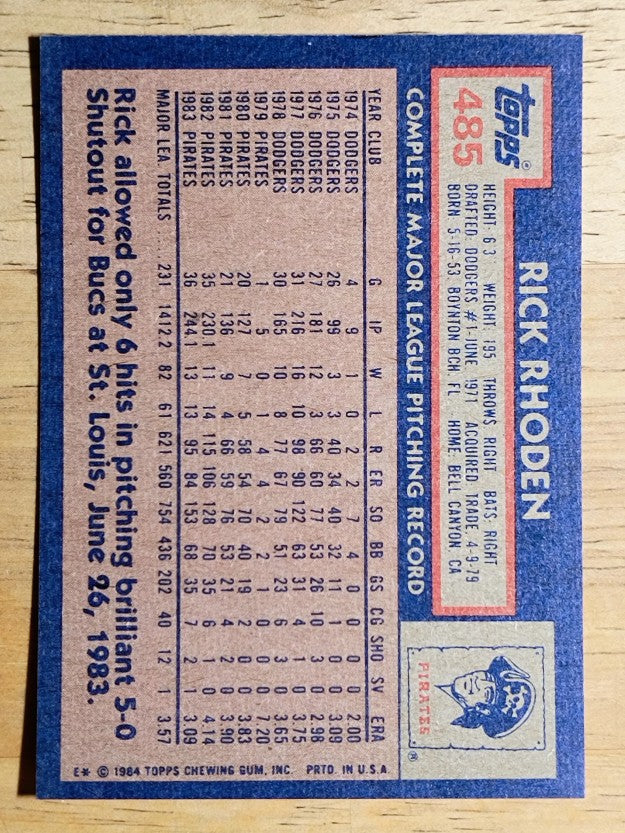 topps®
485
RICK RHODEN
HEIGHT: 6'3" WEIGHT: 195 THROWS: RIGHT BATS: RIGHT
DRAFTED: DODGERS #1-JUNE 1971 ACQUIRED: TRADE, 4-9-79
BORN: 5-16-53, BOYNTON BCH, FL HOME: BELL CANYON, CA
PIRATES
®
COMPLETE MAJOR LEAGUE PITCHING RECORD
YEAR CLUB G IP W L R ER SO BB GS CG SHO SV ERA
1974 DODGERS 4 9 1 0 2 2 7 4 0 0 0 0 2.00
1975 DODGERS 26 99 3 3 40 34 40 32 11 1 0 0 3.09
1976 DODGERS 27 181 12 3 66 60 77 53 26 10 3 0 2.98
1977 DODGERS 31 216 16 10 98 90 122 63 31 4 1 0 3.75
1978 DODGERS 30 165 10 8 77 67 79 51 23 6 3 0 3.65
1979 PIRATES 1 5 0 1 4 4 2 2 1 0 0 0 7.20
1980 PIRATES 20 127 7 5 58 54 70 40 19 2 0 0 3.83
1981 PIRATES 21 136 9 4 66 59 76 53 21 4 2 0 3.90
1982 PIRATES 35 230.1 11 14 115 106 128 70 35 6 1 0 4.14
1983 PIRATES 36 244.1 13 13 95 84 153 68 35 7 2 1 3.09
MAJOR LEA. TOTALS ..... 231 1412.2 82 61 621 560 754 436 202 40 12 1 3.57
Rick allowed only 6 hits in pitching brilliant 5-0
Shutout for Bucs at St. Louis, June 26, 1983.
E* © 1984 TOPPS CHEWING GUM, INC. PRTD. IN U.S.A.